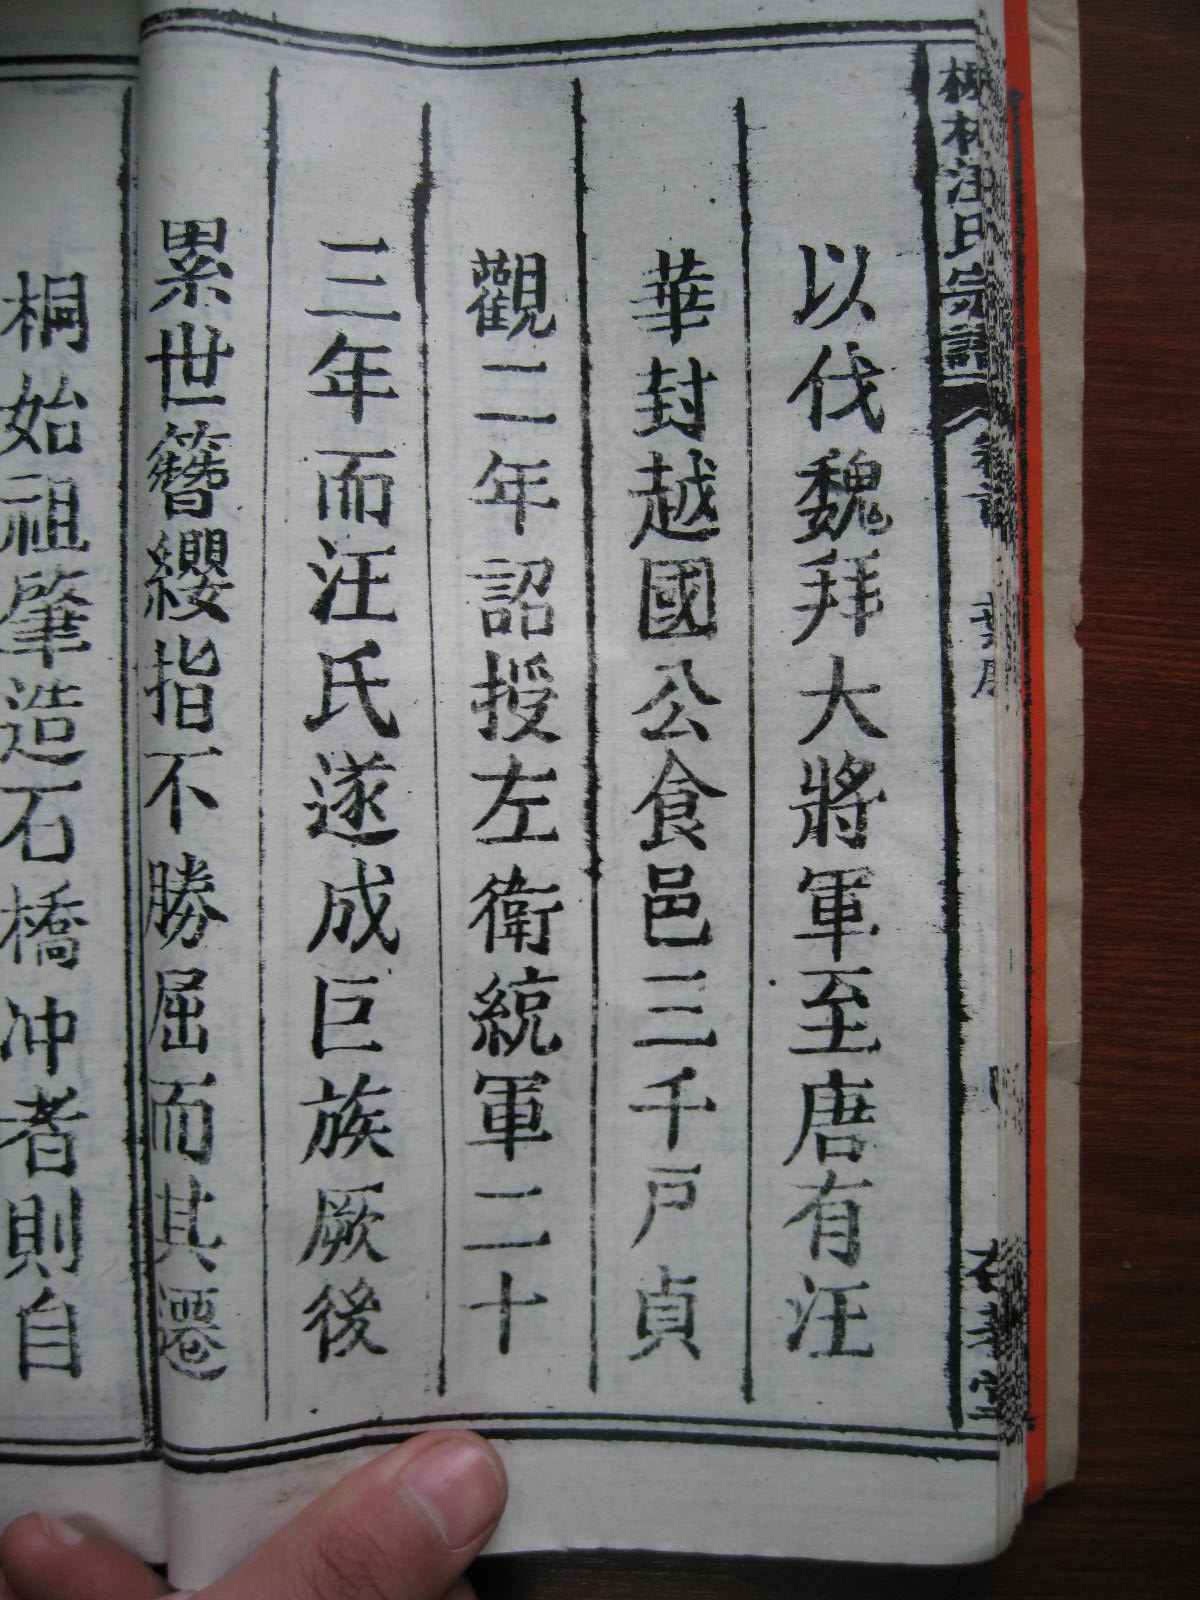 林汪氏宗譜
以伐魏拜大將軍至唐有汪
華封越國公食邑三千戸貞
觀二年詔授左衛統軍二十
三年而汪氏遂成巨族厥後
累世簪纓指不勝屈而其遷
桐始祖肇造石橋冲者則自